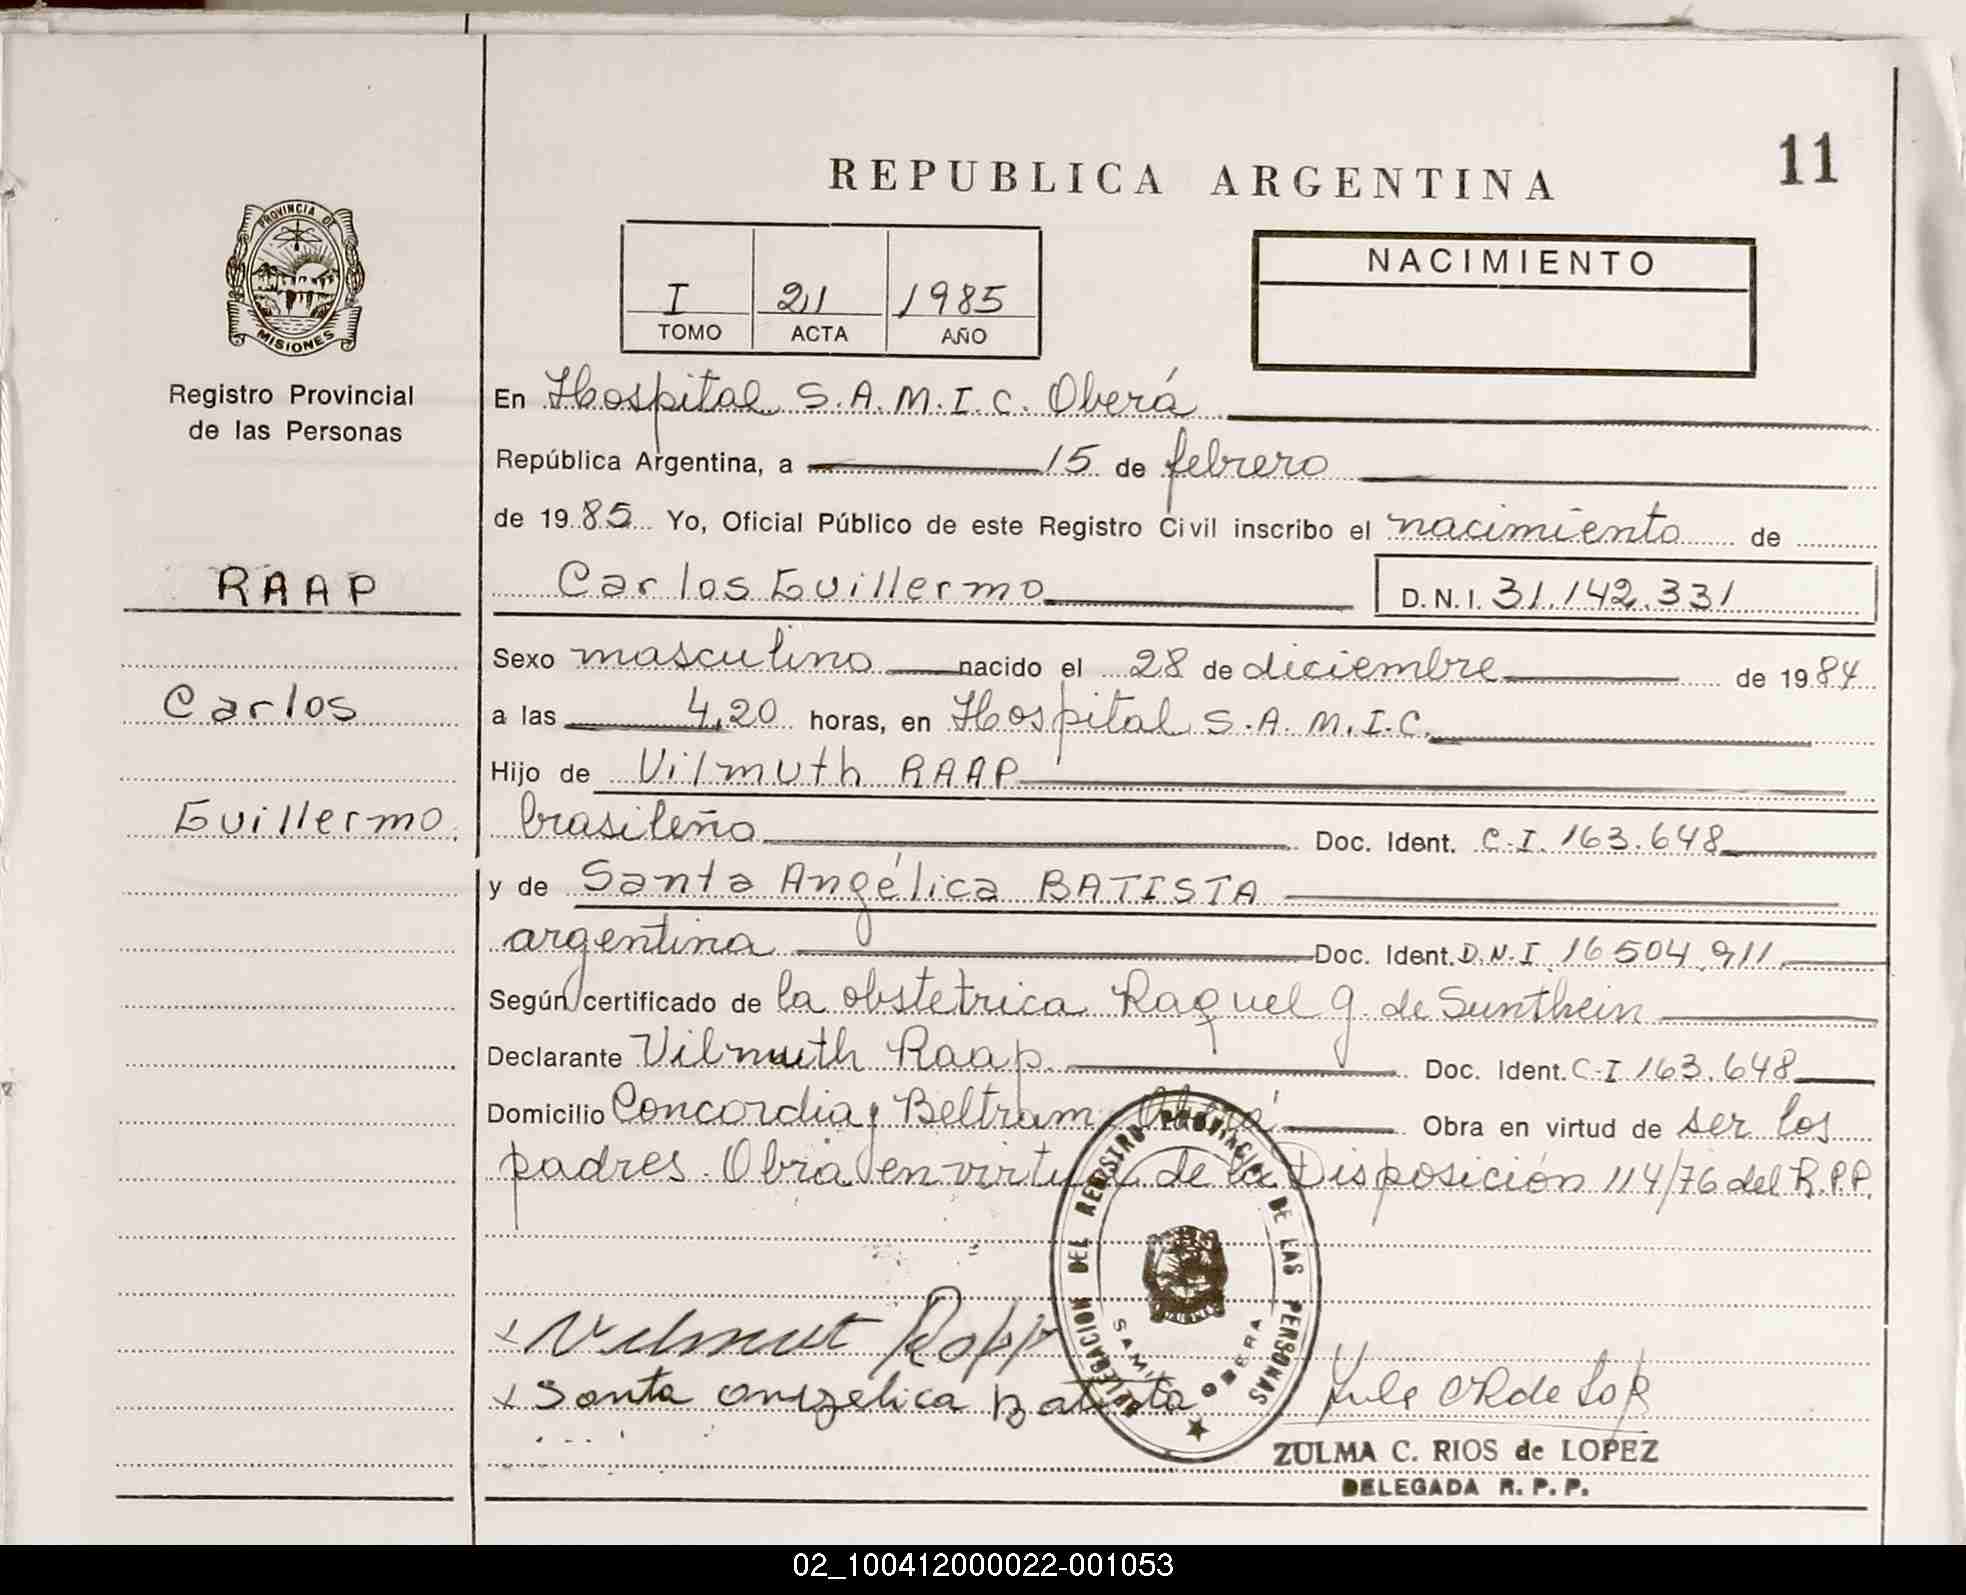 11
REPUBLICA ARGENTINA
PROVINCIA DE
MISIONES
Registro Provincial
de las Personas
RAAP
Carlos
Guillermo.
I 21 1985
TOMO ACTA AÑO
NACIMIENTO
En Hospital S.A.M.I.C. Oberá
República Argentina, a 15 de febrero
de 1985 Yo, Oficial Público de este Registro Civil inscribo el nacimiento de
Carlos Guillermo D.N.I. 31.142.331
Sexo masculino nacido el 28 de diciembre de 1984
a las 4,20 horas, en Hospital S.A.M.I.C.
Hijo de Vilmuth RAAP
brasileño Doc. Ident. C.I. 163.648
y de Santa Angélica BATISTA
argentina Doc. Ident. D.N.I. 16.504.911
Según certificado de la obstetrica Raquel G. de Sunthein
Declarante Vilmuth Raap. Doc. Ident. C-I 163.648
Domicilio Concordia y Beltram Oberá Obra en virtud de ser los
padres. Obra en virtud de la Disposición 114/76 del R.P.P.
DELEGACION DEL REGISTRO PROVINCIAL DE LAS PERSONAS
SAMIC OBERA
x Vilmut Rapp
x Santa angelica Batista
ZULMA C. RIOS de LOPEZ
DELEGADA R. P. P.
02_100412000022-001053